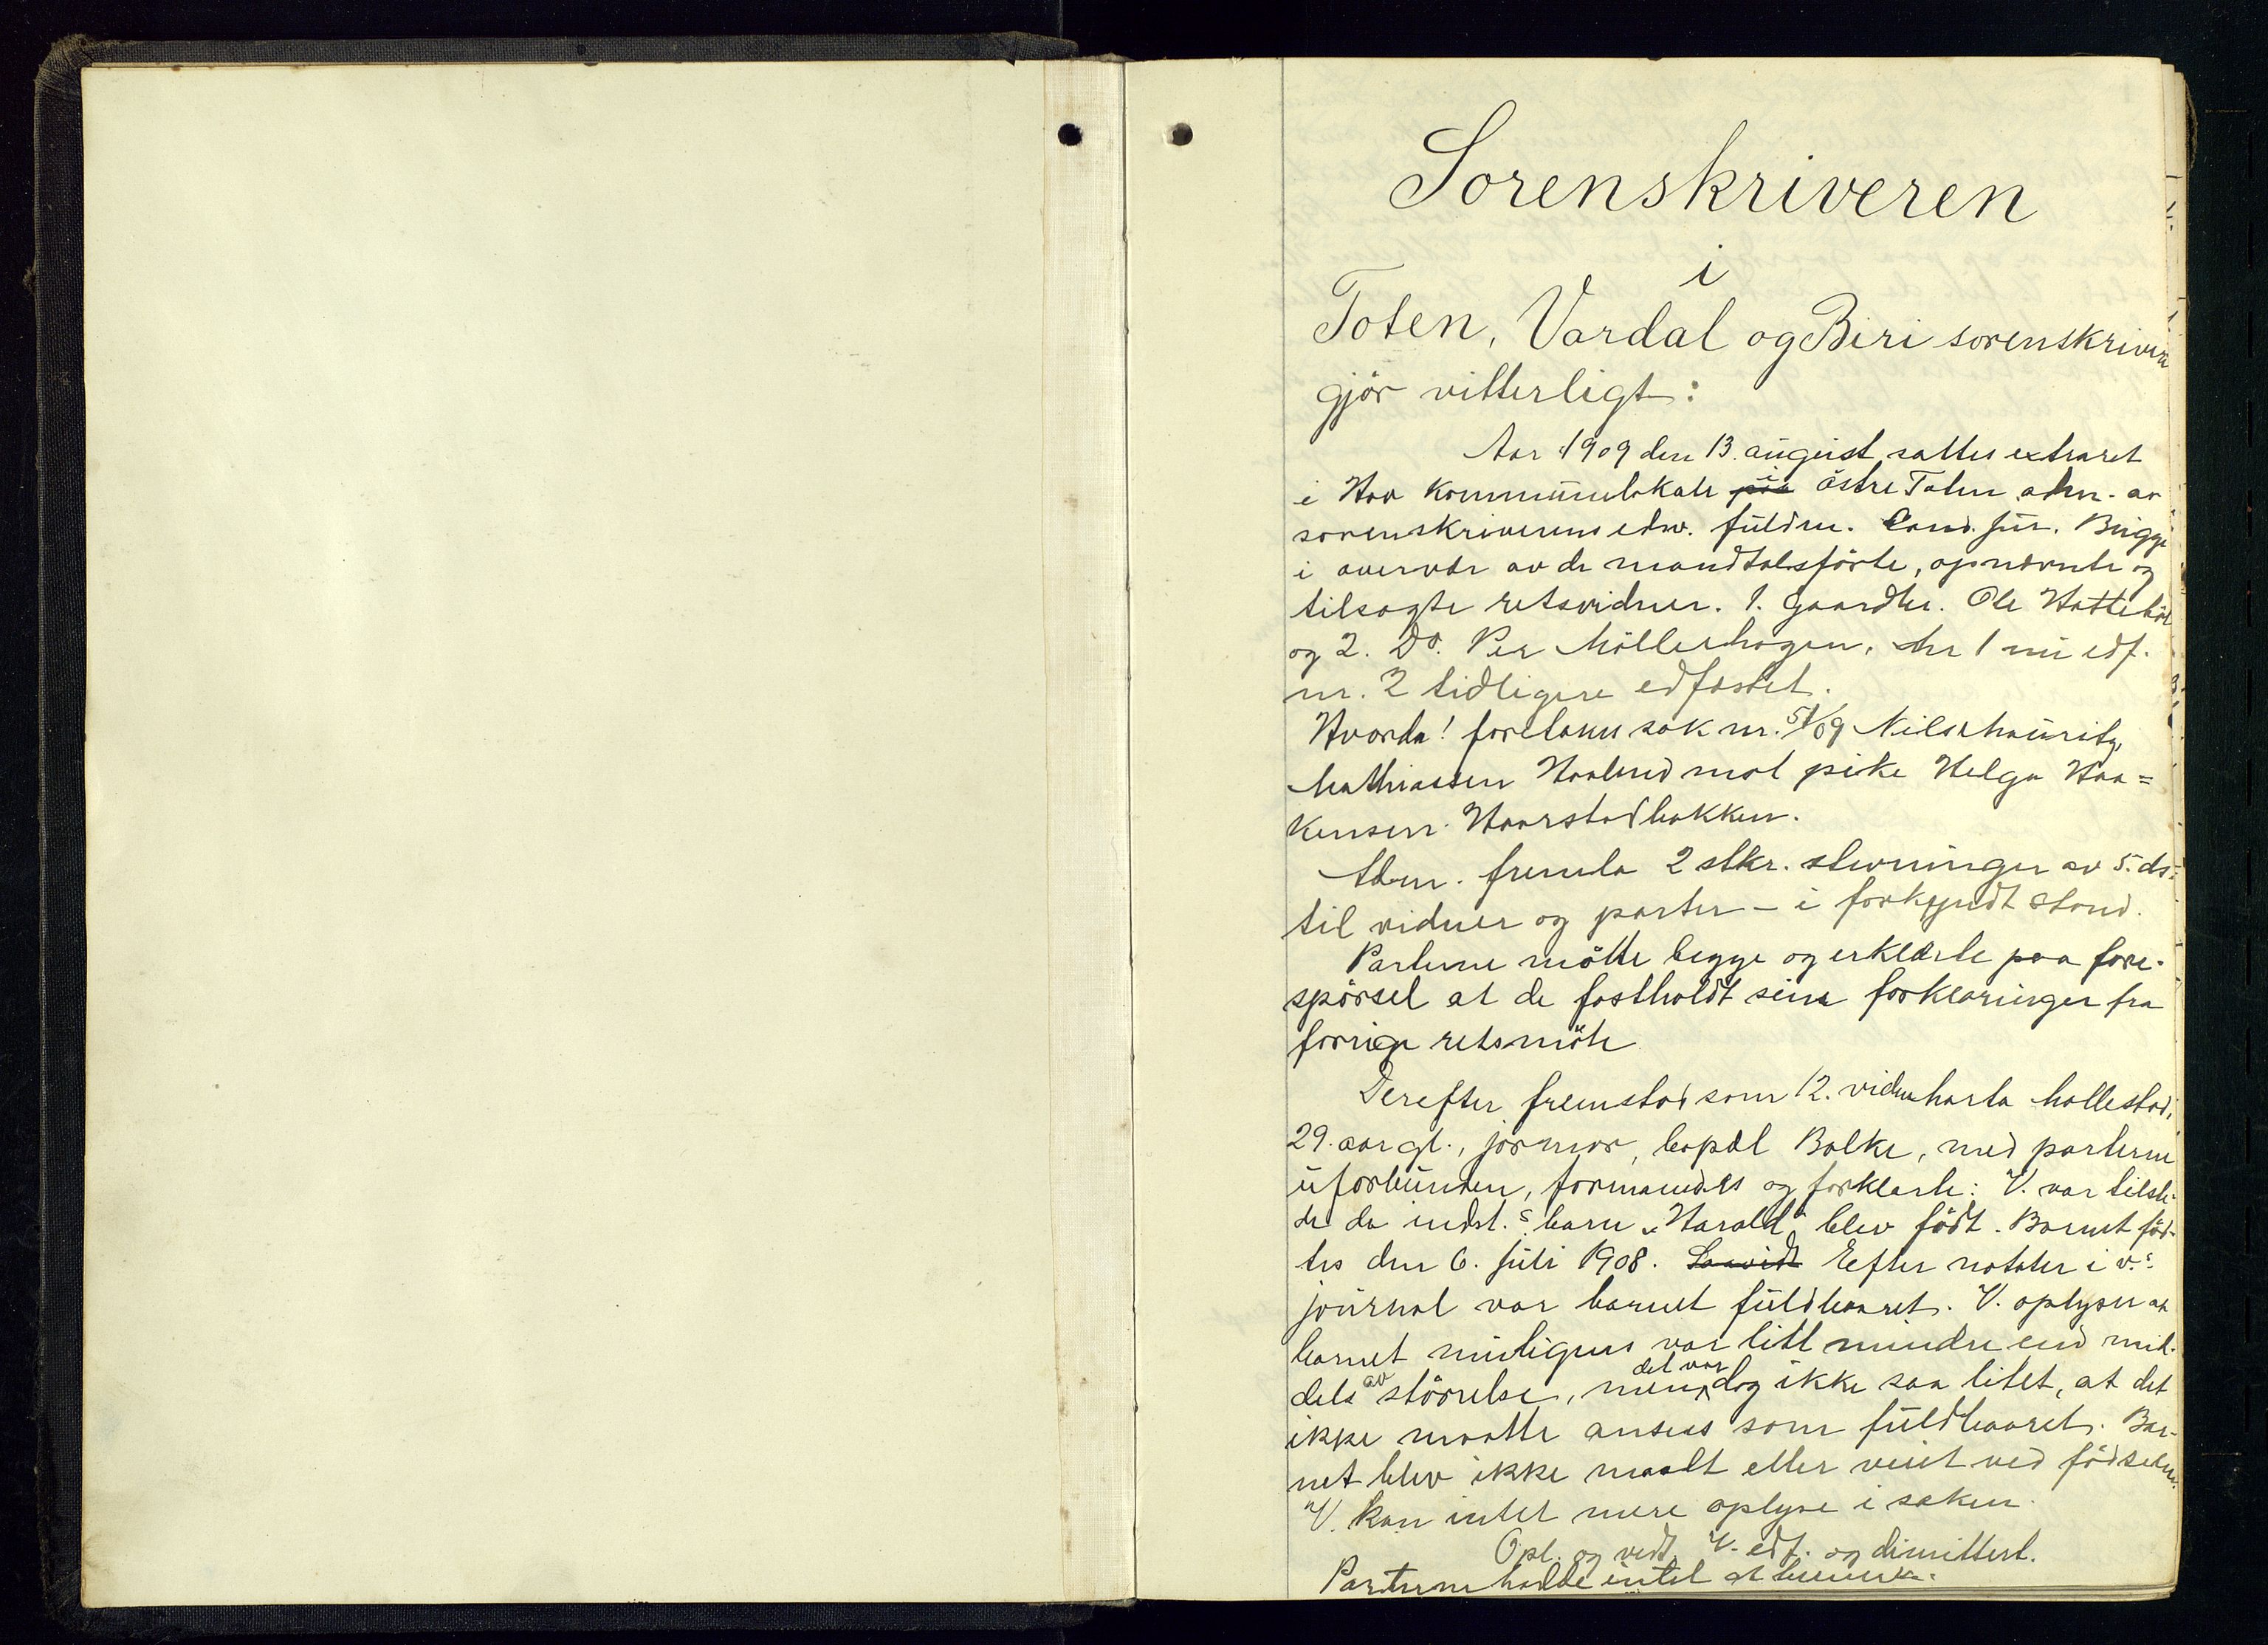 Sorenskriveren
i
Toten, Vardal og Biri sorenskriveri
gjör vitterligt:
Aar 1909 den 13. august sattes extraret
i Hov kommunelokale paa i Östre Toten adm. av
sorenskriverens edsv. fuldm. Cand. jur. Bugge
i overvær av de mandtalsförte, opnævnte og
tilsagte retsvidner. 1. Gaardbr. Ole Hatteböl
og 2. Do. Per Möllerhagen. Nr 1 nu edf.
nr. 2 tidligere edfæstet.
Hvorda! foretokes sak nr. 51/09 Nils Mauritz
Mathiassen Haalund mot pike Helga Haa=
kensen Haarstadbakken.
Adm. fremla 2 stkr. stevninger av 5. ds.
til vidner og parter – i forkyndt stand.
Parterne mötte begge og erklærte paa fore-
spörsel at de fastholdt sine forklaringer fra
forrige retsmöte
Derefter fremstod som 12. vidne Marta Mollestad,
29. aar gl., jormor, bopæl Balke, med parterne
uforbunden, formanedes og forklarte: V. var tilste-
de da indst.s barn "Harald" blev födt. Barnet föd-
tes den 6. juli 1908. Saavidt Efter notater i v.s
journal var barnet fuldbaaret. V. oplyser at
barnet muligens var litt mindre end mid-
dels av störrelse, men det var dog ikke saa litet, at det
ikke maatte ansees som fuldbaaret. Bar-
net blev ikke maalt eller veiet ved födselen.
V. kan intet mere oplyse i saken.
Opl. og vedt. V. edf. og dimittert.
Parterne hadde intet at bemerke.